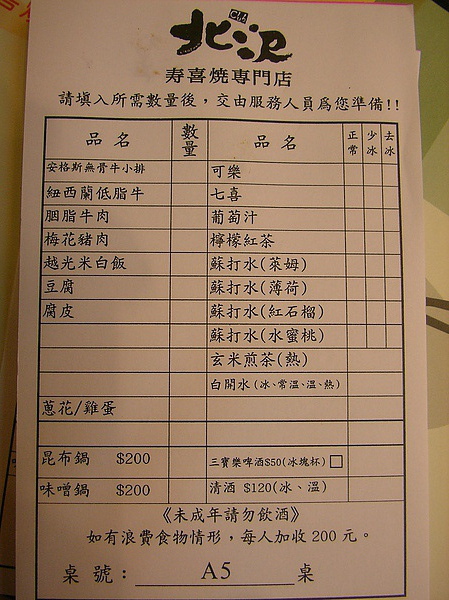 北沢
寿喜燒專門店
請填入所需數量後，交由服務人員為您準備!!
品名 數量 品名 正常 少冰 去冰
安格斯無骨牛小排 可樂
紐西蘭低脂牛 七喜
胭脂牛肉 葡萄汁
梅花豬肉 檸檬紅茶
越光米白飯 蘇打水(萊姆)
豆腐 蘇打水(薄荷)
腐皮 蘇打水(紅石榴)
蘇打水(水蜜桃)
玄米煎茶(熱)
白開水(冰、常溫、溫、熱)
蔥花/雞蛋
昆布鍋 $200 三寶樂啤酒$50(冰塊杯)□
味噌鍋 $200 清酒 $120(冰、溫)
《未成年請勿飲酒》
如有浪費食物情形，每人加收200元。
桌號：A5桌